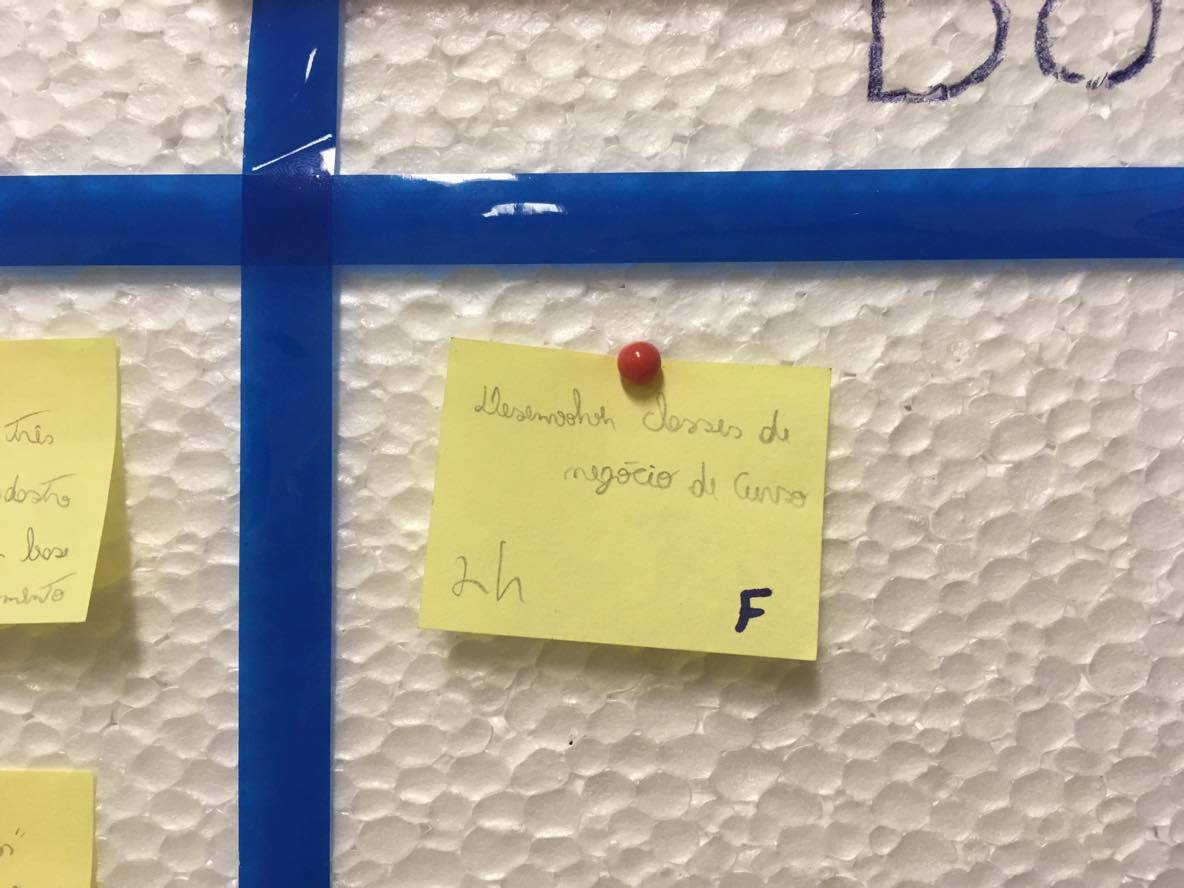 DO
Três
dastro
base
mento
Desenvolver classes de
negócio de Curso
2h
F